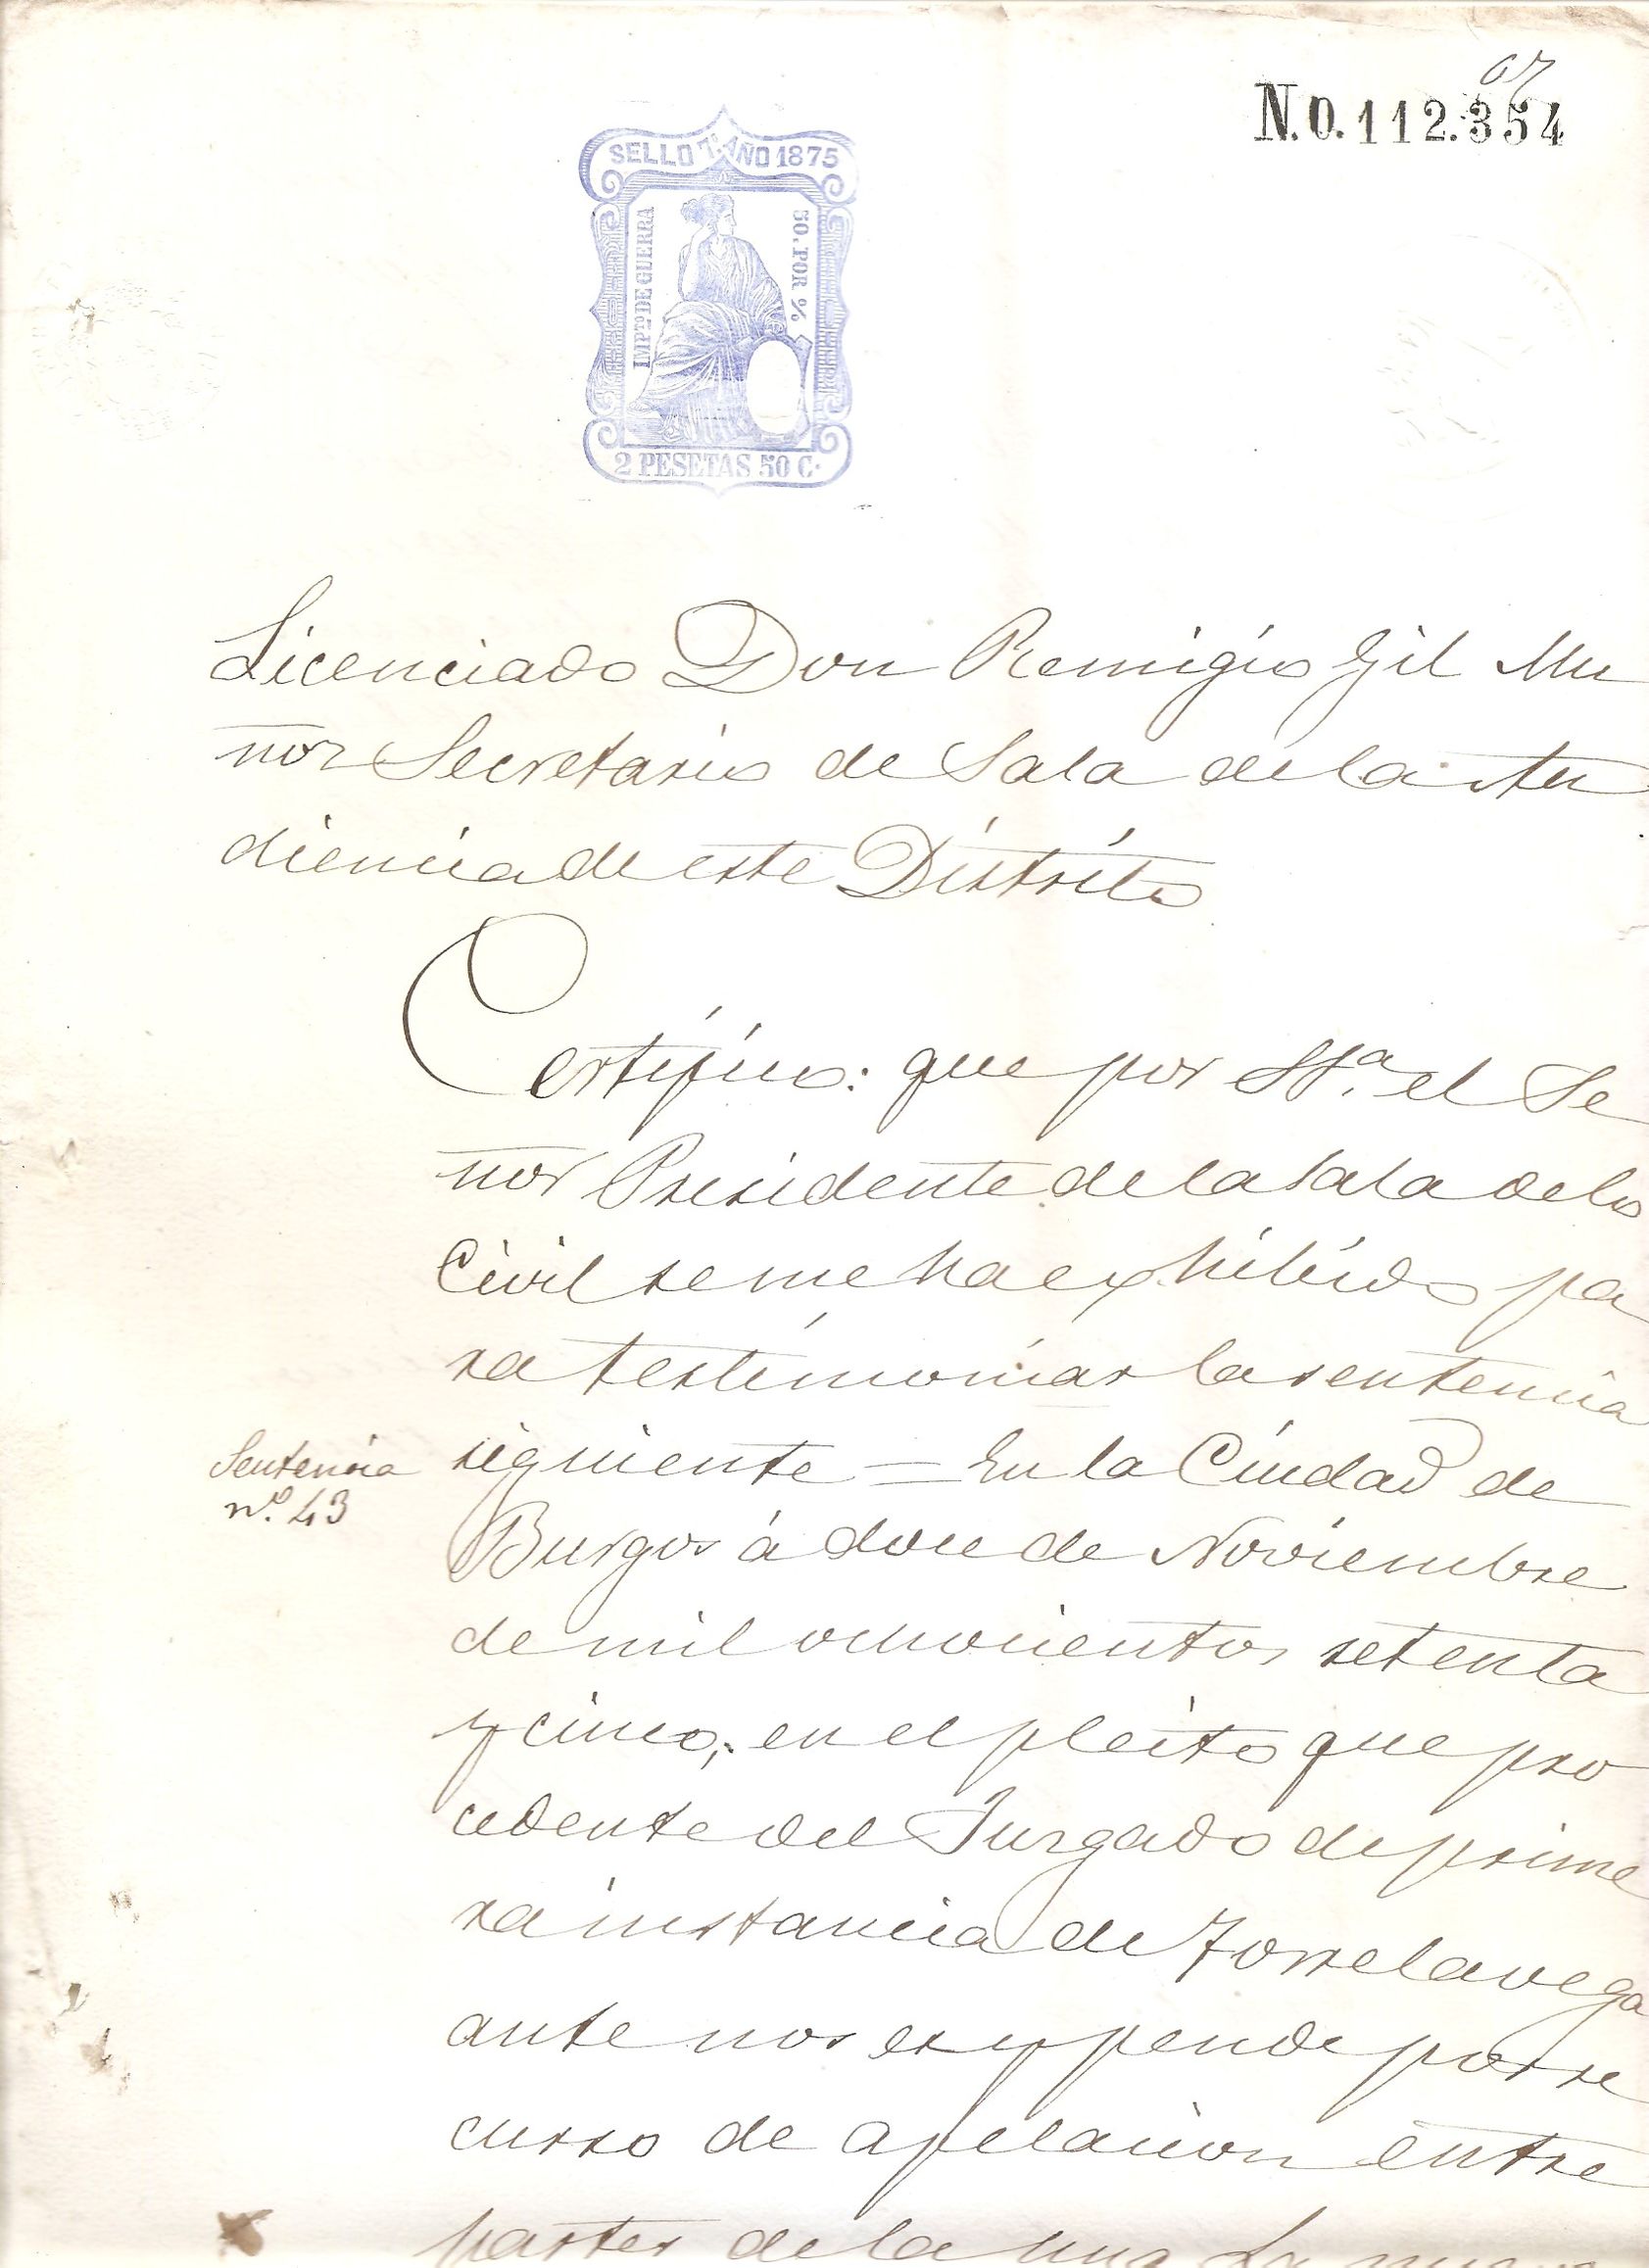 67
N.0.112.354
SELLO 7º AÑO 1875
IMPTO DE GUERRA
50, POR %
2 PESETAS 50 C.
Licenciado Don Remigio Gil Mu
ñoz Secretario de Sala de la Au
diencia de este Distrito
Certifico: que por SSª. el Se
ñor Presidente de la Sala de lo
Civil se me ha exhibido pa
ra testimoniar la sentencia
Sentencia
nº. 43
siguiente = En la Ciudad de
Burgos á doce de Noviembre
de mil ochocientos setenta
y cinco; en el pleito que pro
cedente del Juzgado de prime
ra instancia de Torrelavega
ante nos es y pende por re
curso de apelacion entre
partes de la una